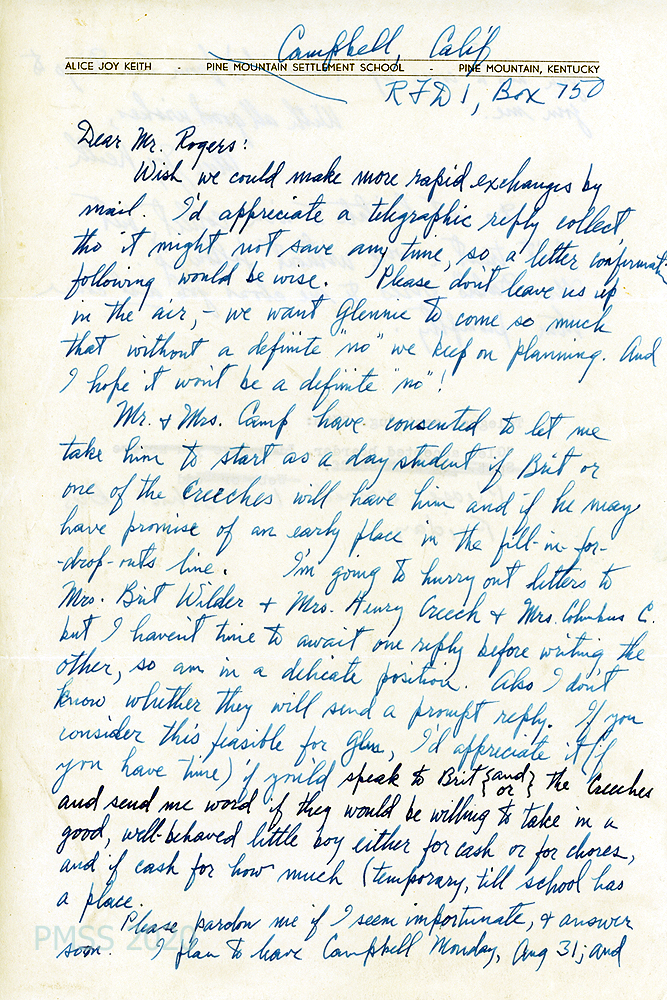 Campbell, Calif
ALICE JOY KEITH - PINE MOUNTAIN SETTLEMENT SCHOOL - PINE MOUNTAIN, KENTUCKY
RFD 1, Box 750
Dear Mr. Rogers:
Wish we could make more rapid exchanges by
mail. I'd appreciate a telegraphic reply collect
tho it might not save any time, so a letter confirmation
following would be wise. Please don't leave us up
in the air, - we want Glennie to come so much
that without a definite "no" we keep on planning. And
I hope it won't be a definite "no"!
Mr. & Mrs. Camp have consented to let me
take him to start as a day student if Brit or
one of the Creeches will have him and if he may
have promise of an early place in the fill-in-for-
-drop-outs line. I'm going to hurry out letters to
Mrs. Brit Wilder & Mrs. Henry Creech & Mrs. Columbus C.
but I haven't time to await one reply before writing the
other, so am in a delicate position. Also I don't
know whether they will send a prompt reply. If you
consider this feasible for Glen, I'd appreciate it (if
you have time) if you'd speak to Brit {and/or} the Creeches
and send me word if they would be willing to take in a
good, well-behaved little boy either for cash or for chores,
and if cash for how much (temporary, till school has
a place.
Please pardon me if I seem importunate, & answer
soon. I plan to leave Campbell Monday, Aug 31; and
PMSS 2020